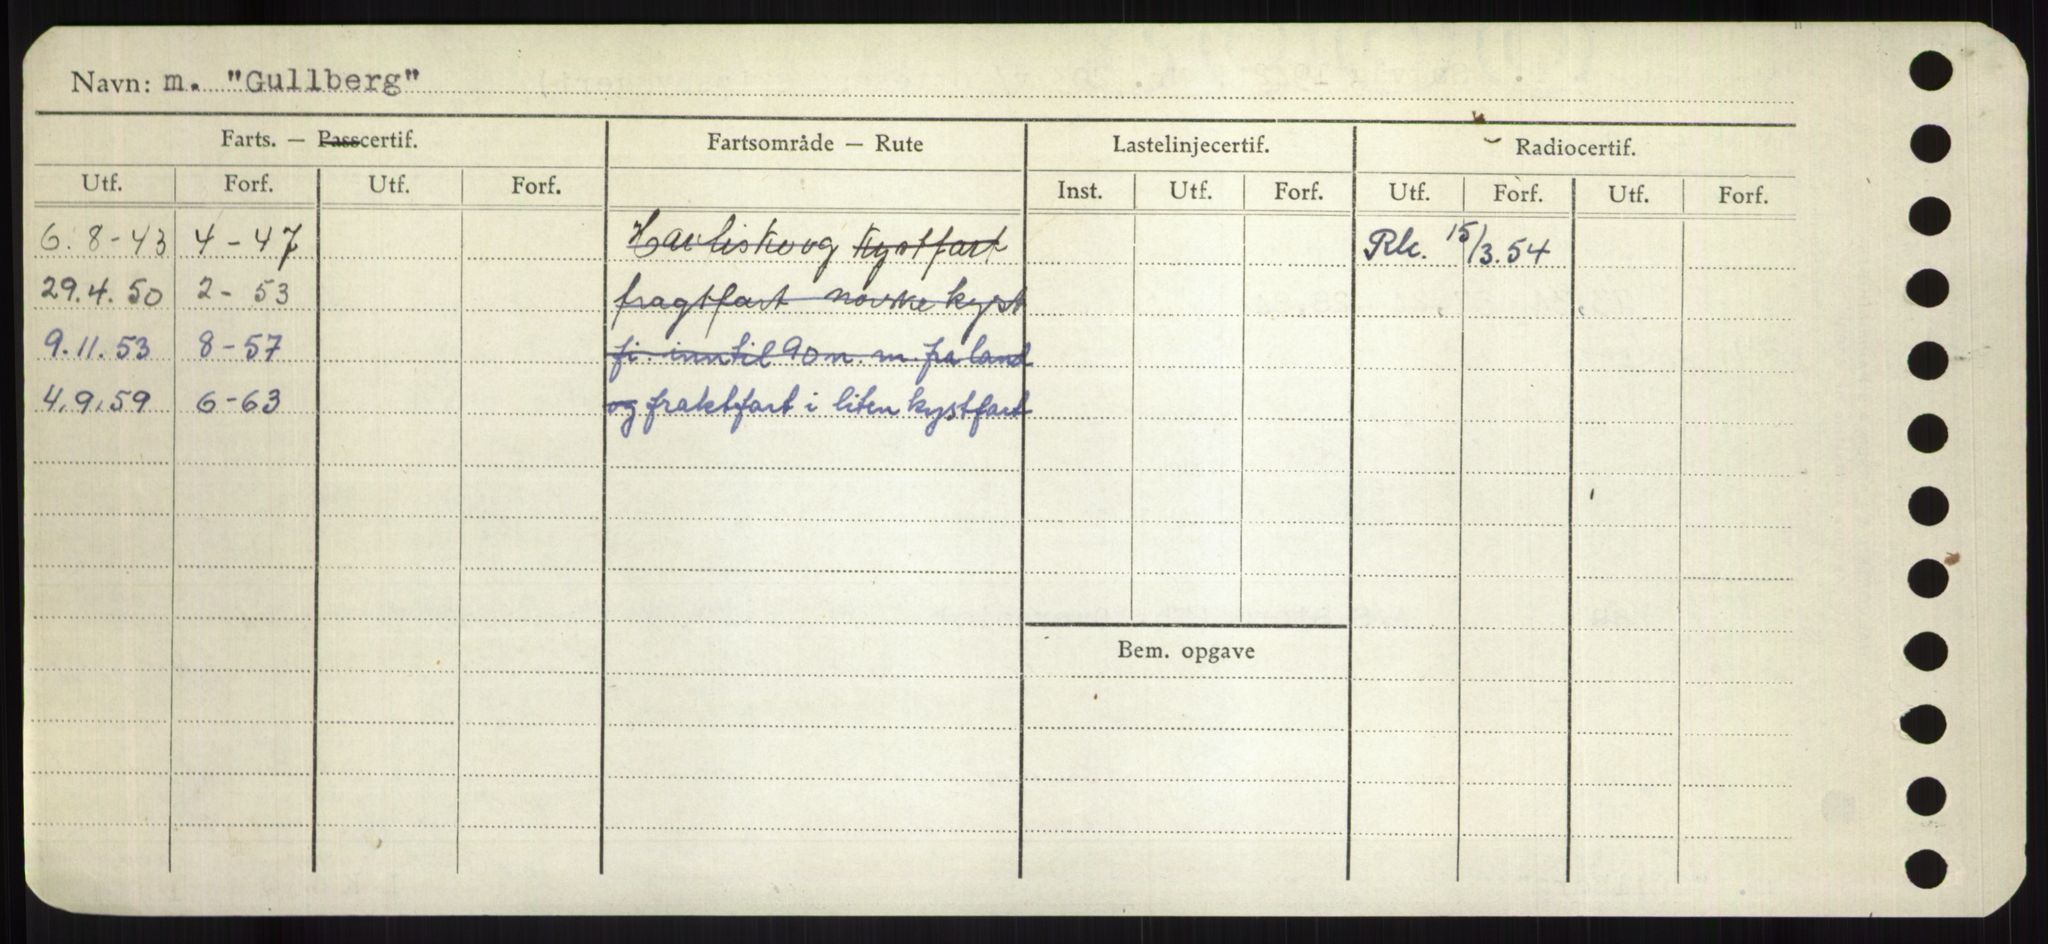 Navn: m. "Gullberg"
Farts. — Passcertif. Fartsområde — Rute Lastelinjecertif. Radiocertif.
Utf. Forf. Utf. Forf. Inst. Utf. Forf. Utf. Forf. Utf. Forf.
6.8-43 4-47 Havfiske og Kystfart Rk. 15/3.54
29.4.50 2-53 fragtfart norske kyst
9.11.53 8-57 fi. inntil 90 n. m. fra land
4.9.59 6-63 og fraktfart i liten kystfart
Bem. opgave